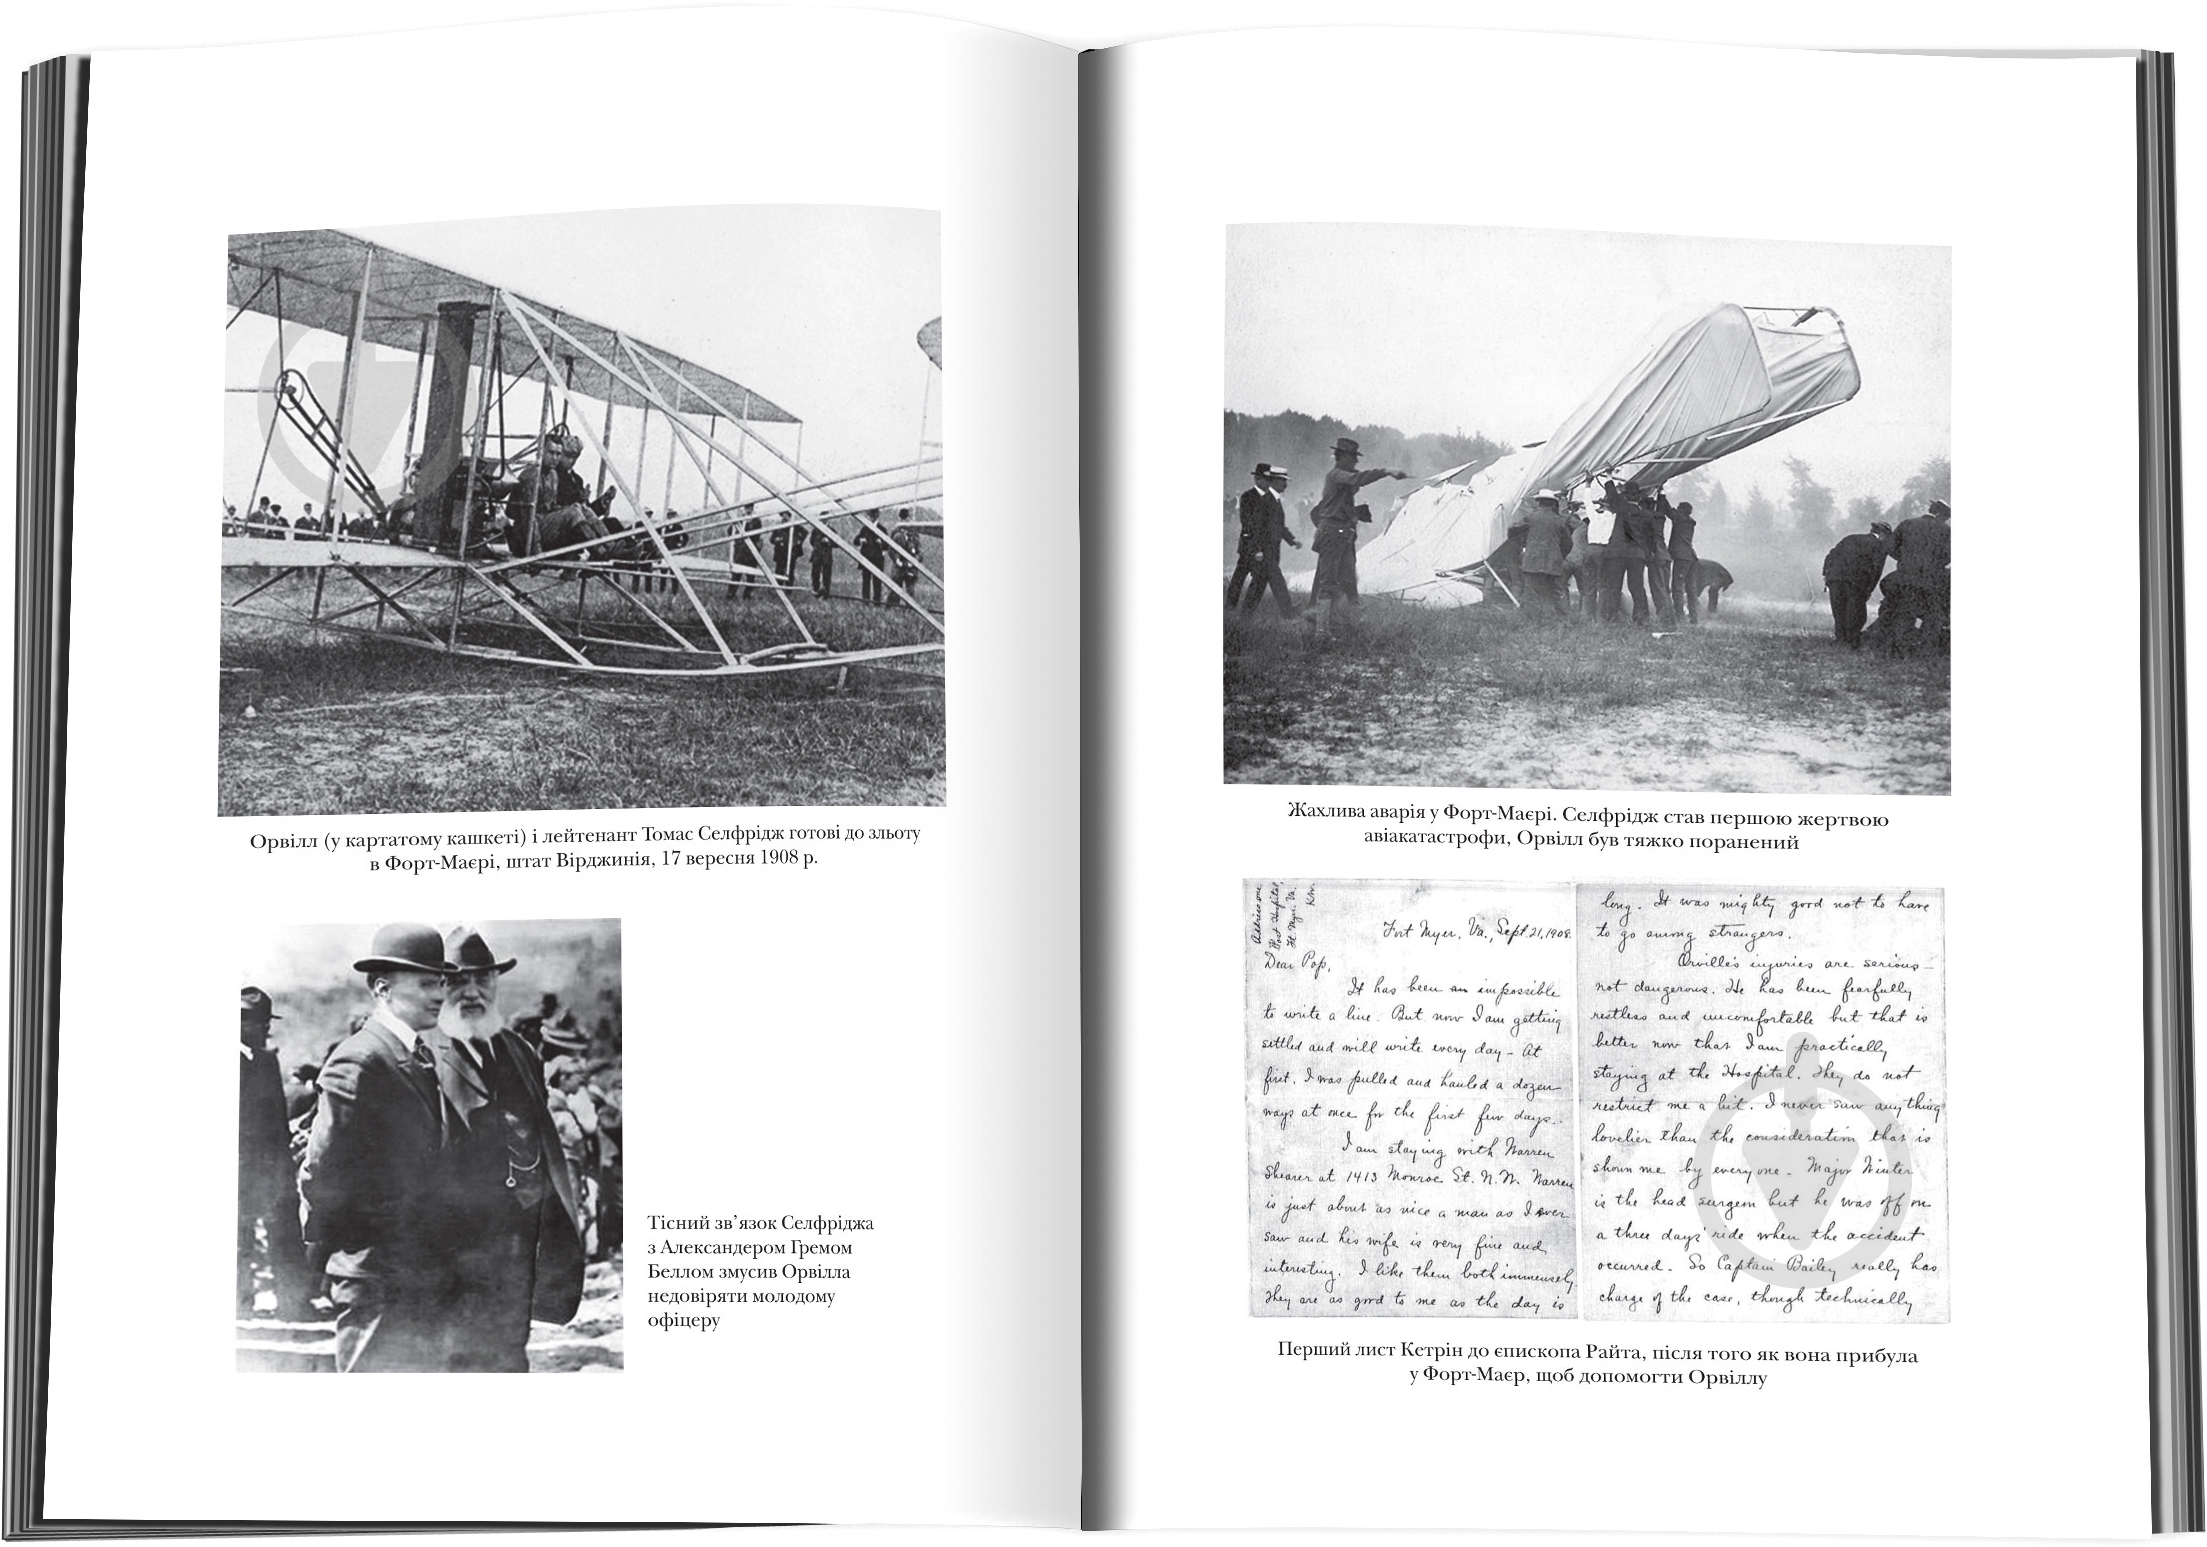 Орвілл (у картатому кашкеті) і лейтенант Томас Селфрідж готові до зльоту
в Форт-Маєрі, штат Вірджинія, 17 вересня 1908 р.
Тісний зв’язок Селфріджа
з Александером Гремом
Беллом змусив Орвілла
недовіряти молодому
офіцеру
Жахлива аварія у Форт-Маєрі. Селфрідж став першою жертвою
авіакатастрофи, Орвілл був тяжко поранений
Address me
Post Hospital,
Ft. Myer. Va.
Fort Myer, Va., Sept. 21, 1908.
Dear Pop,
It has been an impossible
to write a line. But now I am getting
settled and will write every day – At
first, I was pulled and hauled a dozen
ways at once for the first few days.
I am staying with Warren
Shearer at 1413 Monroe St. N.W. Warren
is just about as nice a man as I ever
saw and his wife is very fine and
interesting. I like them both immensely.
They are as good to me as the day is
long. It was mighty good not to have
to go among strangers.
Orville's injuries are serious –
not dangerous. He has been fearfully
restless and uncomfortable but that is
better now that I am practically
staying at the Hospital. They do not
restrict me a bit. I never saw anything
lovelier than the consideration that is
shown me by everyone. Major Winter
is the head surgeon but he was off on
a three days' ride when the accident
occurred. So Captain Bailey really has
charge of the case, though technically
Перший лист Кетрін до єпископа Райта, після того як вона прибула
у Форт-Маєр, щоб допомогти Орвіллу